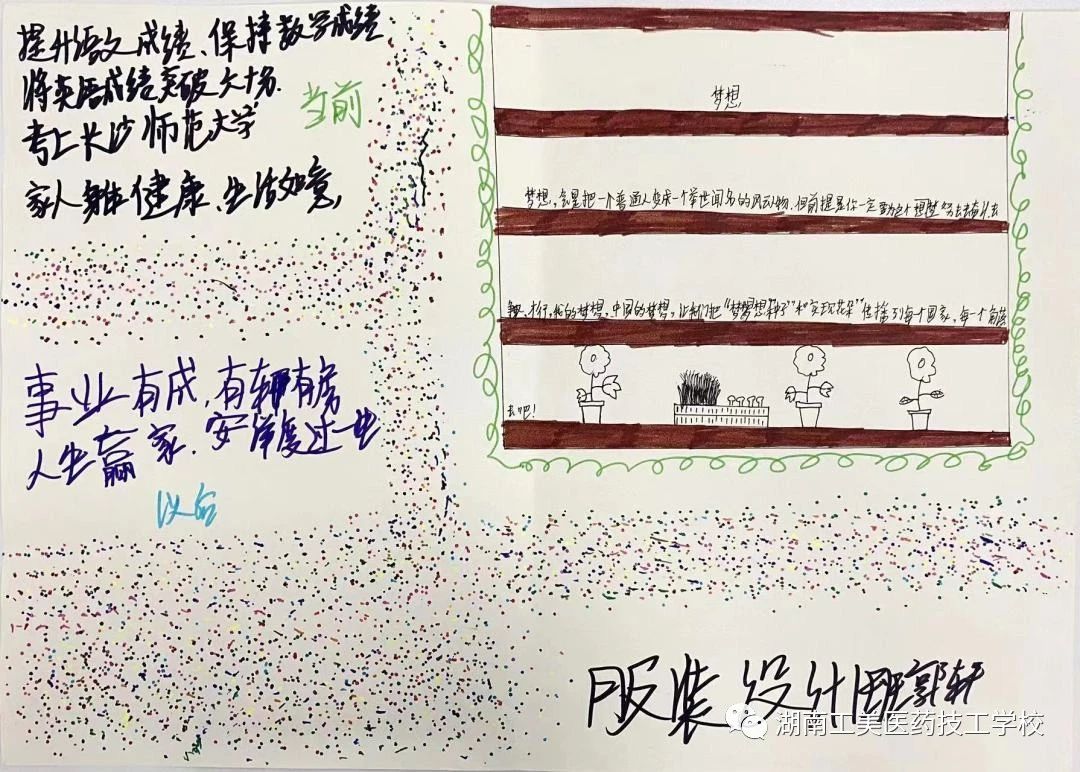 提升语文成绩、保持数学成绩
将英语成绩突破六十分.
考上长沙师范大学
家人身体健康、生活如意,
当前
事业有成,有车有房
人生赢家、安详度过一生
以后
梦想,
梦想,会是把一个普通人变成一个举世闻名的风云人物、但前提是你一定要为这个理想努力去奋斗、去
才行,我的梦想,中国的梦想,让我们把“梦想种子”和“实现花朵”传播到每个国家,每一个角落
去吧!
服装设计1班郭轩
湖南工美医药技工学校